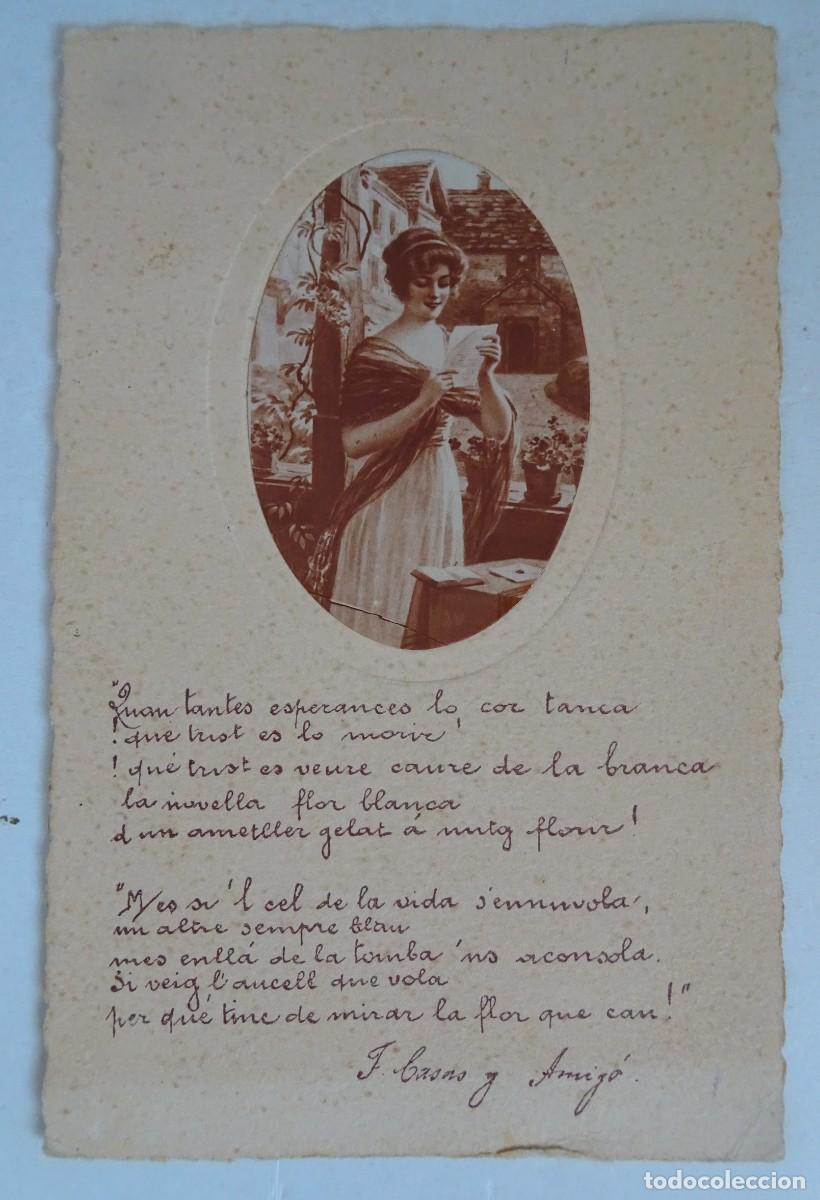 "Quan tantes esperances lo cor tanca
! qué trist es lo morir!
! qué trist es veure caure de la branca
la novella flor blanca
d un ametller gelat á mitg florir!
"Mes si 'l cel de la vida s'ennuvola,
un altre sempre blau
mes enllá de la tomba 'ns aconsola.
Si veig l'aucell que vola
per qué tinc de mirar la flor que cau!"
F. Casas y Amigó.
todocoleccion